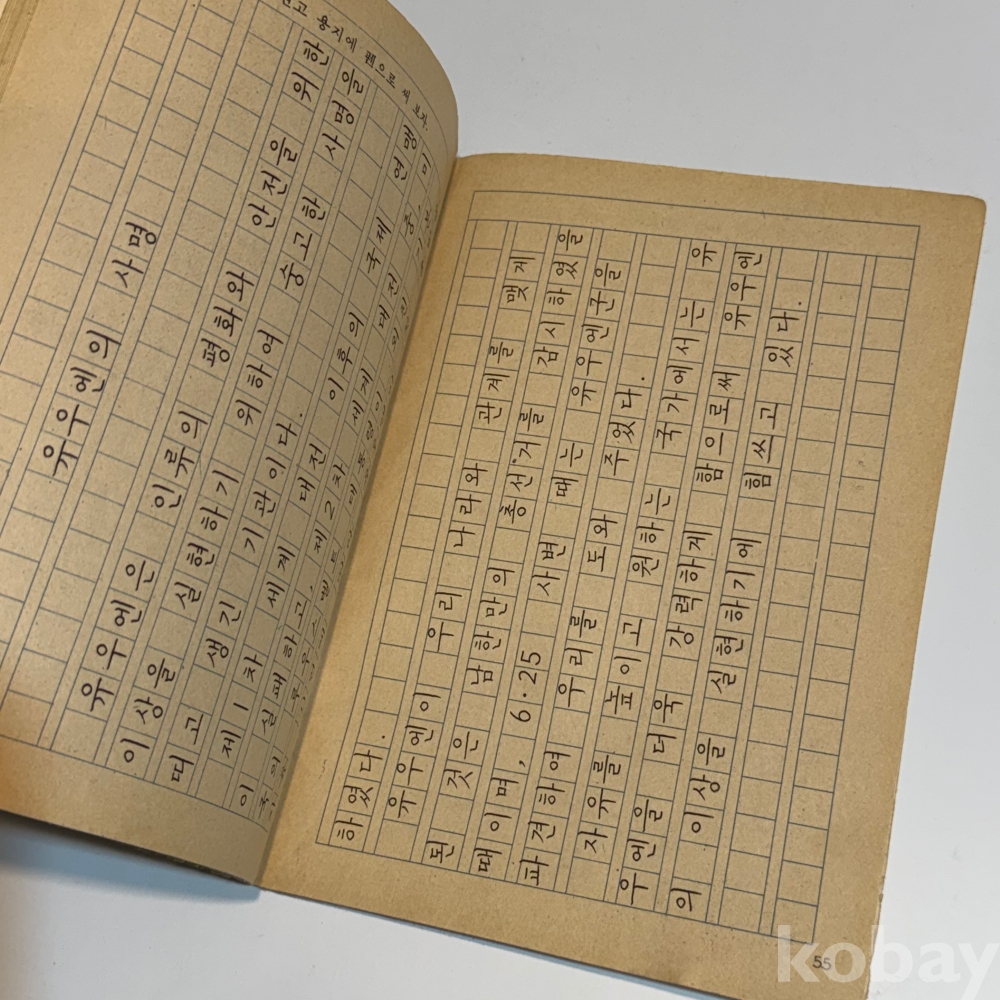 고 용지에 펜으로 써 보자.
유우엔의 사명
유우엔은 인류의 평화와 안전을 위한
이상을 실현하기 위하여 숭고한 사명을
띠고 생긴 기관이다.
제1차 세계 대전 이후의 국제 연맹
이 실패하고, 제2차 세계 대전 중, 미
하였다.
유우엔이 우리 나라와 관계를 맺게
된 것은 남한만의 총선거를 감시하였을
때이며, 6·25 사변 때는 유우엔군을
파견하여 우리를 도와 주었다.
자유를 높이고 원하는 국가에서는 유
우엔을 더욱 강력하게 함으로써 유우엔
의 이상을 실현하기에 힘쓰고 있다.
55
kobay